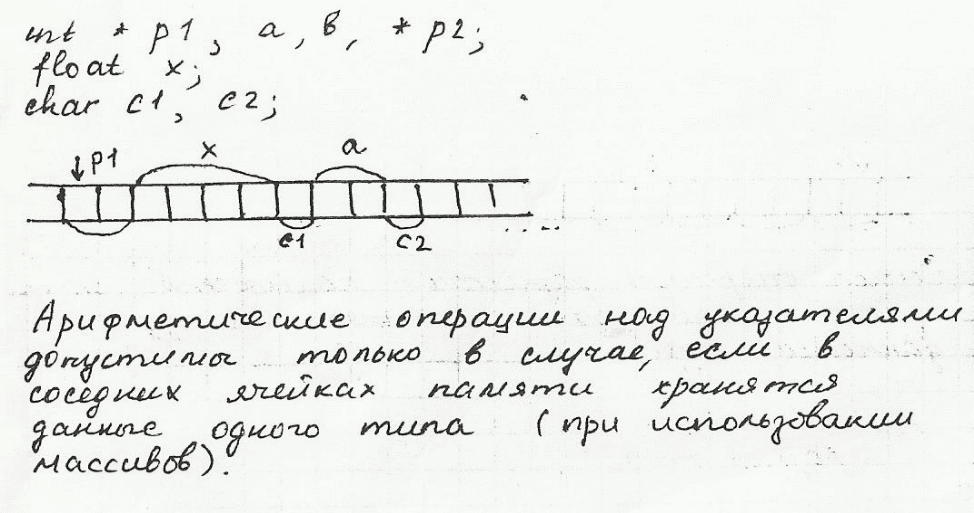 int * p1, a, в, * p2;
float x;
char c1, c2;
p1 x a
c1 c2
Арифметические операции над указателями
допустимы только в случае, если в
соседних ячейках памяти хранятся
данные одного типа (при использовании
массивов).